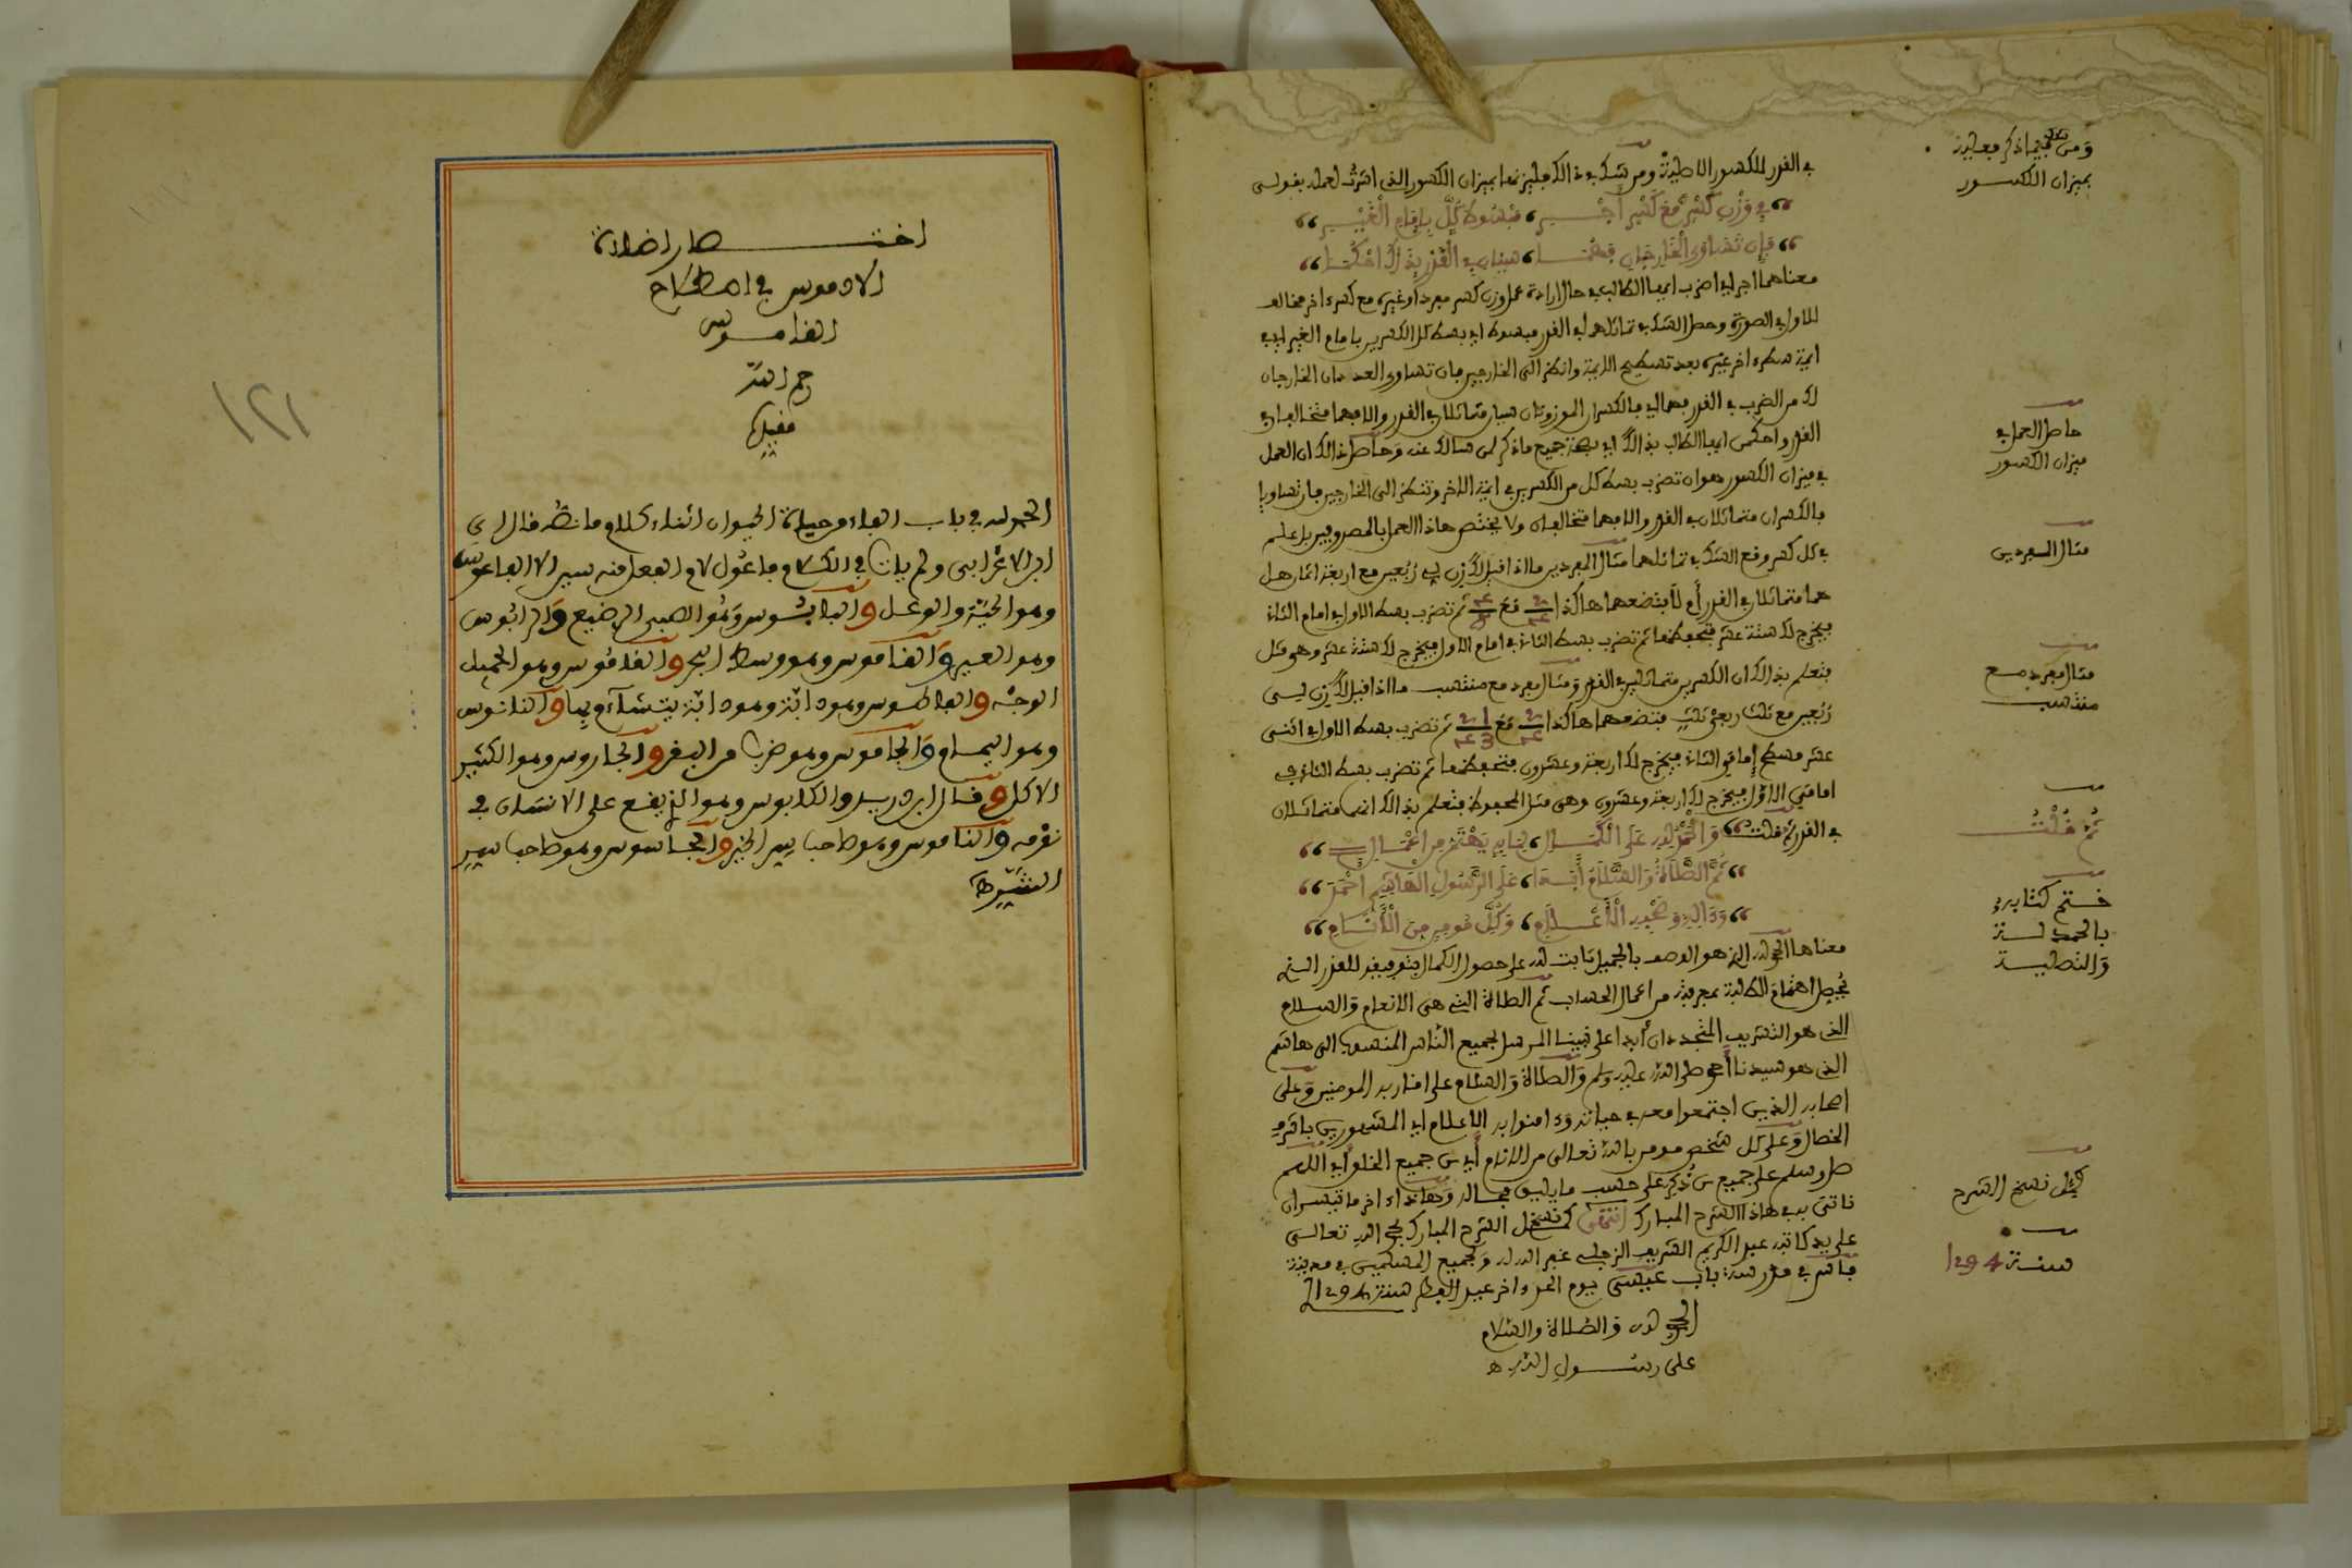 في القدر للكسور الاصلية ومن شك في ذالك فليزنها بميزان الكسور الذي اشرت لعمله بقولي
في وزن كسر مع كسر أجنبي، مبسوط كل بإمام الغير
فإن تساوى الخارجان فهما، سيان في القدر بذاك احكما
معناهما اجر اي اضرب ايها الطالب في حال ارادة عمل وزن كسر مفرد أو غيره مع كسر اخر مخالف
للاول في الصورة وحصل الشك في تماثلهما في القدر مبسوط اي بسط كل الكسرين بامام الغير اي في
ايمة سطره اخر غيره بعد تسطيح الايمة وانظر الى الخارجين فان تساوى العددان الخارجان
لك من الضرب في القدر فهما اي فالكسران الموزونان سيان متماثلان في القدر والا فهما متخالفان في
القدر واحكمن ايها الطالب بذالك اي بصحة جميع ما ذكر لمن سالك عنه وحاصل ذالك ان العمل
في ميزان الكسور هو ان تضرب بسط كل من الكسرين في ايمة الاخر وتنظر الى الخارجين فان تساويا
فالكسران متماثلان في القدر والا فهما متخالفان ولا يختص هاذا العمل بالمصروفين بل اعلم
في كل كسر وقع الشك في تماثلهما مثال المفردين ما اذا قيل لك زن لي ربعين مع اربعة اثمان هل
هما متماثلان في القدر أم لا فتضعهما هاكذا 2/4 مع 4/8 ثم تضرب بسط الاول في امام الثاني
فيخرج لك ستة عشر فتحفظها ثم تضرب بسط الثاني في امام الاول فيخرج لك ستة عشر وهي مثل
فتعلم بذالك ان الكسرين متماثلين في القدر ومثال مفرد مع منتسب ما اذا قيل لك زن لي
ربعين مع ثلث ربعي ثلث فتضعهما هاكذا 2/4 مع 1 2/3 4 ثم تضرب بسط الاول في اثني
عشر مسطح إمامي الثاني فيخرج لك اربعة وعشرون فتحفظها ثم تضرب بسط الثاني في
امامي الاول فيخرج لك اربعة وعشرون وهي مثل المحفوظة فتعلم بذالك انهما متماثلان
في القدر ثم قلت والحمد لله على الكمال، لما به يهتم من اعمال
ثم الصلاة والسلام أبدا، على الرسول الهاشمي احمد
وءاله وصحبه الأعلام، وكل مومن من الأنام
معناها الحمد لله الذي هو الوصف بالجميل ثابت لله على حصول الكمال بتوفيقه للقدر الذي
يحصل اهتمام الطلبة بمعرفته من اعمال الحساب ثم الصلاة التي هي الانعام والسلام
الذي هو التشريف المتجددان أبدا على نبينا المرسل لجميع الناس المنسوب الى هاشم
الذي هو سيدنا أحمد صلى الله عليه وسلم والصلاة والسلام على اقاربه المومنين وعلى
اصحابه الذين اجتمعوا معه في حياته وءامنوا به الاعلام اي المشهورين باشرف
الخصال وعلى كل شخص مومن بالله تعالى من الانام أي من جميع الخلق اي اللهم
صل وسلم على جميع من ذكر على حسب ما يليق بحاله وهاذا اخر ما تيسر ان
ناتي به في هاذا الشرح المبارك انتهى كمل نسخ الشرح المبارك بحمد الله تعالى
على يد كاتبه عبد الكريم الشريف الزجلي غفر الله له ولجميع المسلمين في مدينة
فاس في مدرسة باب عيسى يوم الاحد واخر عيد الفطر سنة 1294
الحمد لله والصلاة والسلام
على رسول الله ه
ومن شك فيما ذكر فعليه
بميزان الكسور
حاصل العمل في
ميزان الكسور
مثال المفردين
مثال مفرد مع
منتسب
ثم قلت
ختم كتابه
بالحمدلة
والتصلية
كمل نسخ الشرح
سنة 1294
اختصار اضاءة
الادموس في اصطلاح
القاموس
رحم الله
مقيده
الحمد لله في باب الفاء من حياة الحيوان اثناء كلام ما نصه قال ابن
ابن الاعرابي ولم يات في الكلام فاعول لام الفعل منه سين الا الفاعوس
وهو الحية والوعل والبابوس وهو الصبي الرضيع والراموس
وهو القبر والقاموس وهو وسط البحر والقابوس وهو الجميل
الوجه والعاطوس وهو دابة وهو دابة يتشاءم بها والفانوس
وهو النمام والجاموس وهو ضرب من البقر والجاروس وهو الكثير
الاكل وقال ابن دريد والكابوس وهو الذي يقع على الانسان في
نومه والناموس وهو صاحب سر الخير والجاسوس وهو صاحب سر
الشر ه
١٢١